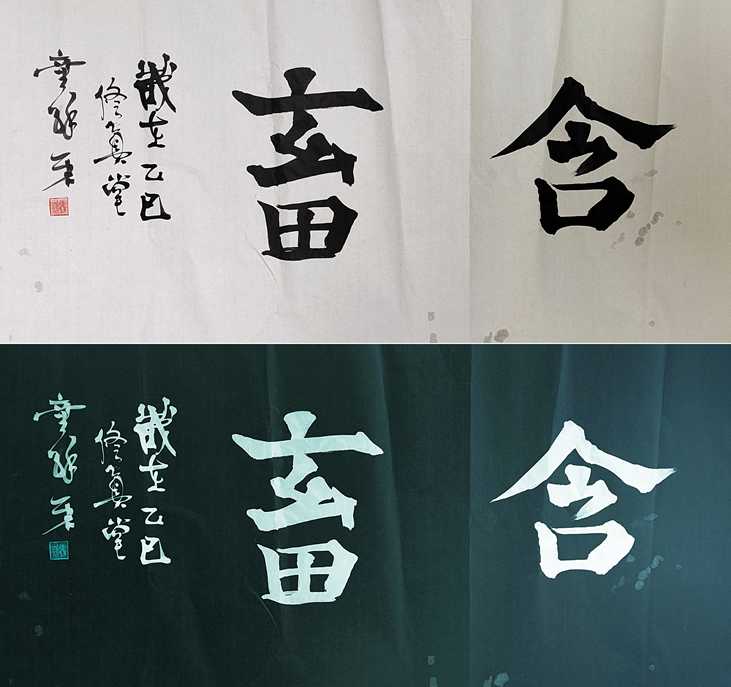 含畜
歲在乙巳
修真堂
含畜
歲在乙巳
修真堂